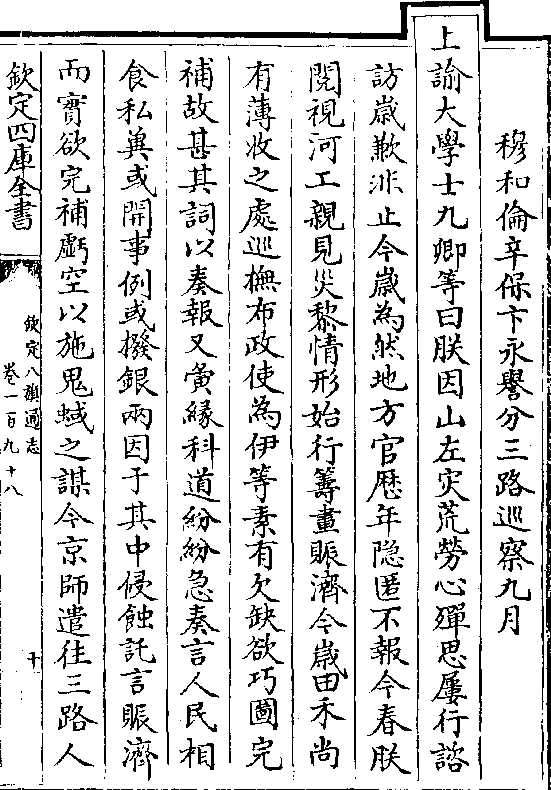 穆和倫辛保卞永譽分三路巡察九月
上諭大學士九卿等曰朕因山左灾荒勞心殫思屢行諮
訪歲歉非止今歲為然地方官歷年隐匿不報今春朕
閱視河工親見災黎情形始行籌畫賑濟今歲田禾尚
有薄收之處巡撫布政使為伊等素有欠缺欲巧圖完
補故甚其詞以奏報又夤緣科道紛紛急奏言人民相
食私冀或開事例或撥銀兩因于其中侵蝕託言賑濟
而實欲完補虧空以施鬼蜮之謀今京師遣往三路人
欽定四庫全書
欽定八旗通志
卷一百九十八
十